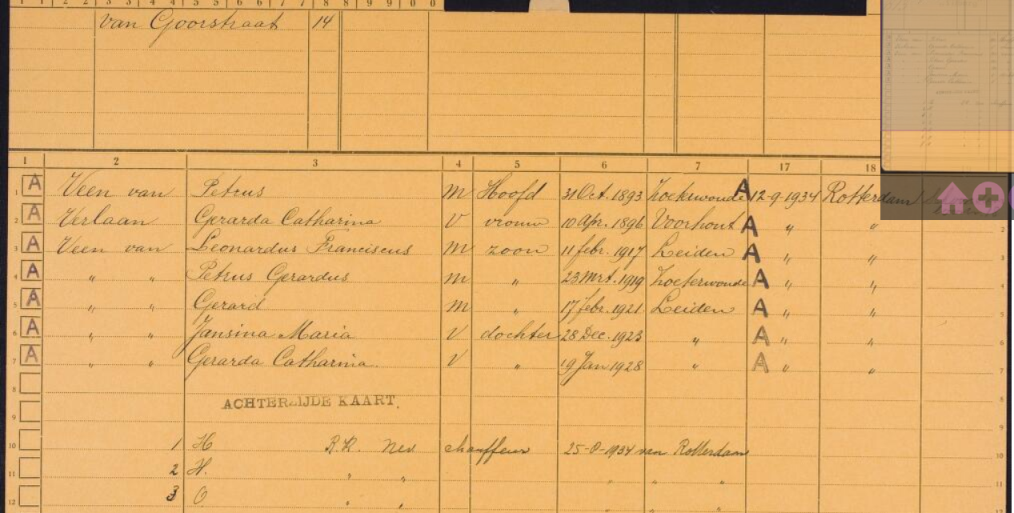 1 1 2 2 3 3 4 4 5 5 6 6 7 7 8 8 9 9 0 0
van Goorstraat 14
1 2 3 4 5 6 7 17 18
1 A Veen van Petrus M Hoofd 31 Oct. 1893 A 12-9-1934 Rotterdam
A Verlaan Gerarda Catharina V vrouw 10 Apr. 1896 Voorhout A " " 2
3 A Veen van Leonardus Franciscus M zoon 11 febr. 1917 Leiden A " " 3
4 A " " Petrus Gerardus M " 23 Mrt. 1919 Zoeterwoude A " " 4
5 A " " Gerard M 17 febr. 1921 Leiden A " " 5
6 A " " Jansina Maria V dochter 28 Dec. 1923 " A " " 6
7 A " " Gerarda Catharina V " 19 Jan 1928 " A " " 7
8
9 ACHTERZIJDE KAART. 9
10 1 H R.K. Ned chauffeur 1934 van Rotterdam 10
11 2 H. " " " " " 11
12 3 O " " " " "